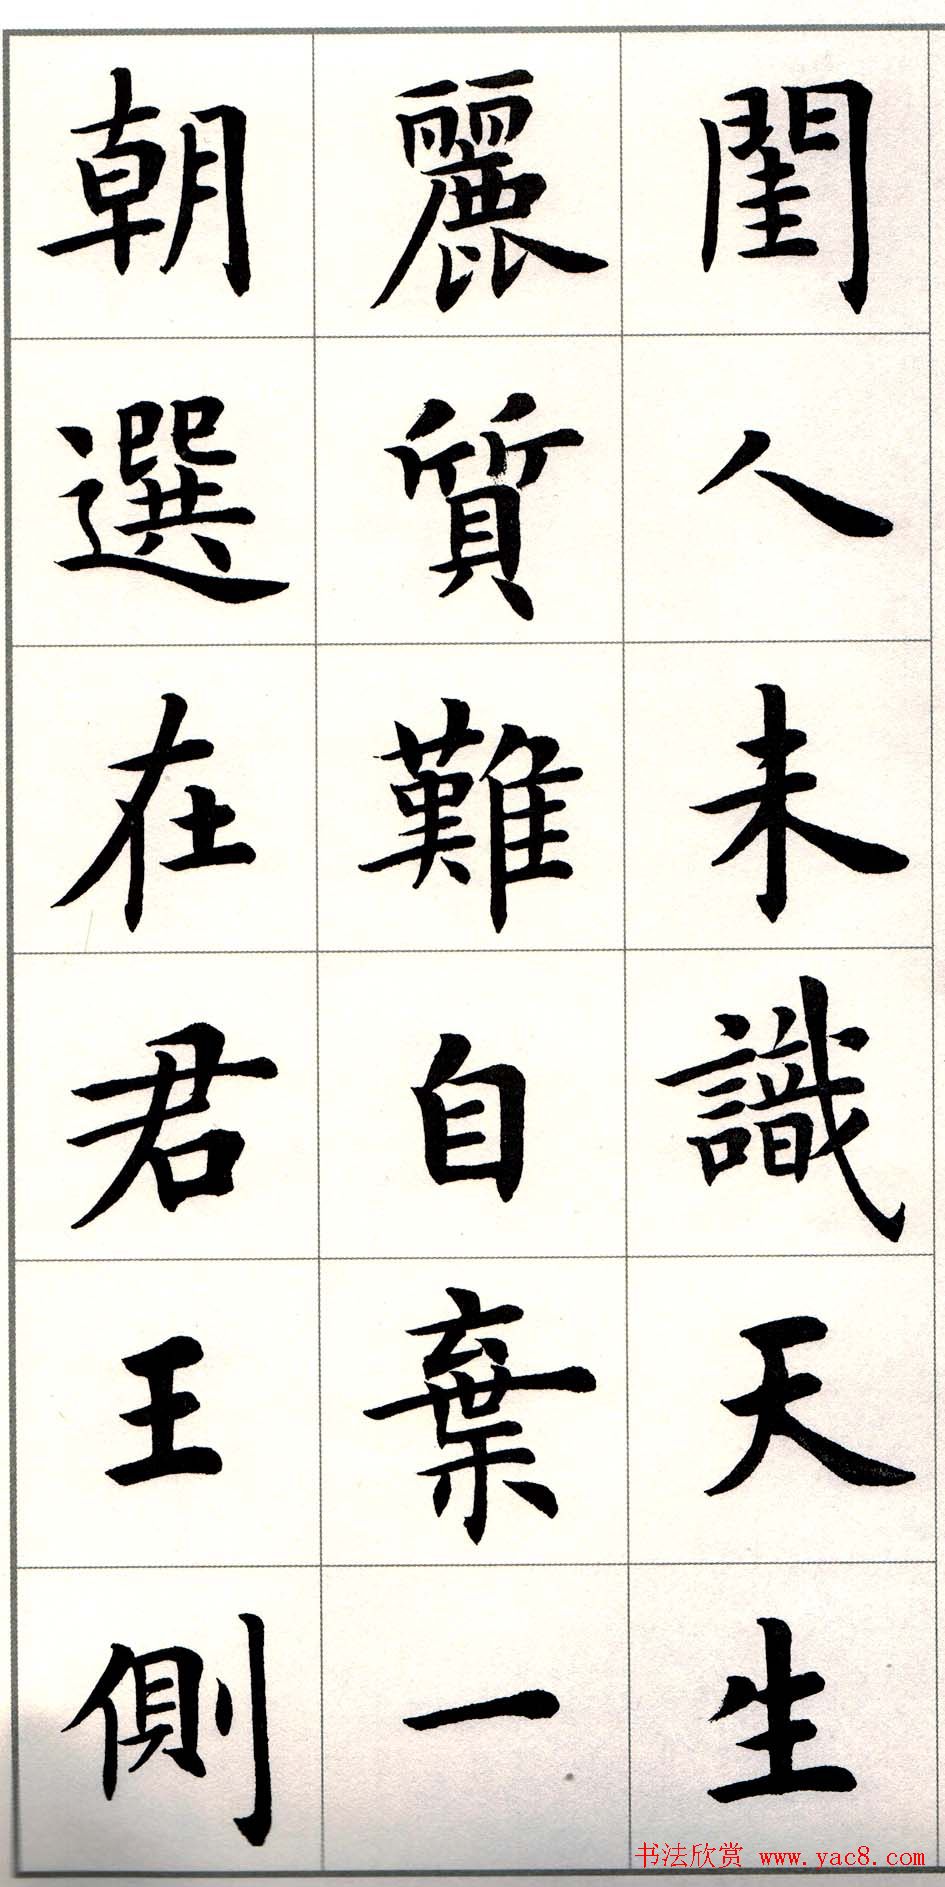 閨人未識天生
麗質難自棄一
朝選在君王側
书法欣赏 www.yac8.com